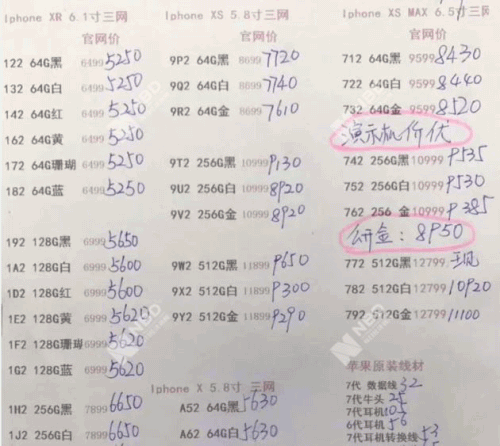 Iphone XR 6.1寸三网
官网价
122 64G黑 6499 5250
132 64G白 6499 5250
142 64G红 6499 5250
162 64G黄 6499 5250
172 64G珊瑚 6499 5250
182 64G蓝 6499 5250
192 128G黑 6999 5650
1A2 128G白 6999 5600
1D2 128G红 6999 5600
1E2 128G黄 6999 5620
1F2 128G珊瑚 6999 5620
1G2 128G蓝 6999 5620
1H2 256G黑 7899 6650
1J2 256G白 7899 6650
Iphone XS 5.8寸三网
官网价
9P2 64G黑 8699 7720
9Q2 64G白 8699 7740
9R2 64G金 8699 7610
9T2 256G黑 10999 9130
9U2 256G白 10999 8920
9V2 256G金 10999 8920
9W2 512G黑 11899 9650
9X2 512G白 11899 9300
9Y2 512G金 11899 9290
Iphone X 5.8寸 三网
A52 64G黑 5630
A62 64G白 5630
Iphone XS MAX 6.5寸三网
官网价
712 64G黑 9599 8430
722 64G白 9599 8440
732 64G金 9599 8520
演示机价优
742 256G黑 10999 9535
752 256G白 10999 9530
762 256 金 10999 9385
金: 8950
772 512G黑 12799
782 512G白 12799 10920
792 512G金 12799 11100
苹果原装线材
7代 数据线 32
7代牛头 25
7代耳机 105
6代耳机 56
7代耳机转换线 53
NBD